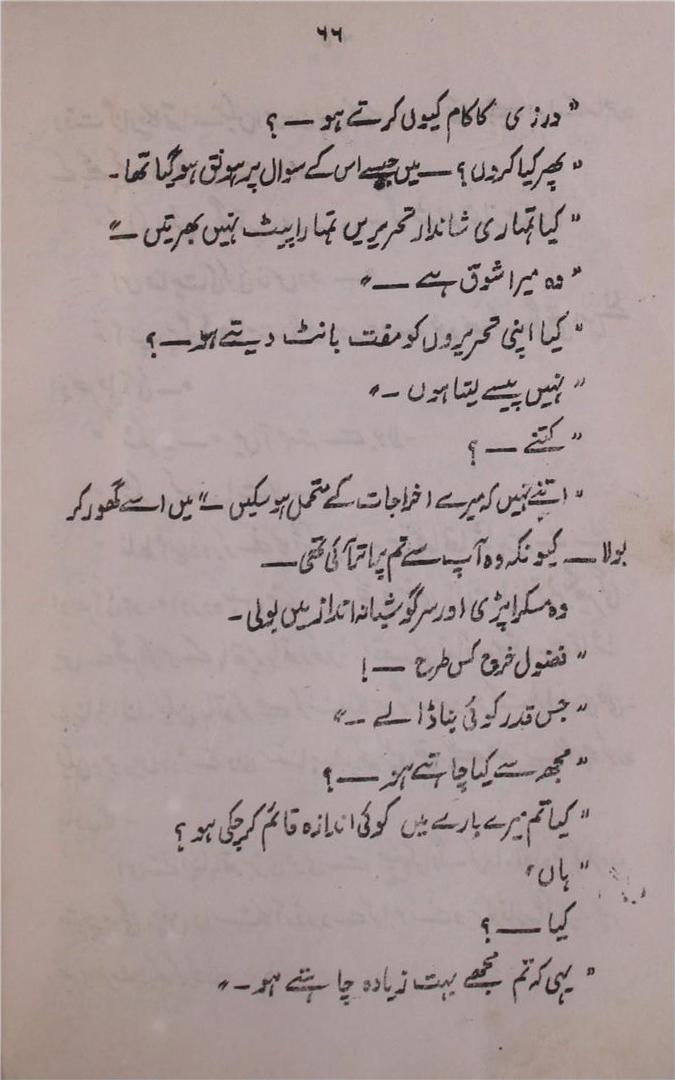 ۶۶
"درزی کا کام کیوں کرتے ہو — ؟
"پھر کیا کروں؟ — میں جیسے اس کے سوال پر ہونق ہو گیا تھا۔
"کیا تمہاری شاندار تحریریں تمہارا پیٹ نہیں بھرتیں —"
"وہ میرا شوق ہے —"
"کیا اپنی تحریروں کو مفت بانٹ دیتے ہو — ؟
"نہیں پیسے لیتا ہوں ۔"
"کتنے — ؟
"اتنے نہیں کہ میرے اخراجات کے متحمل ہو سکیں —" میں اسے گھور کر
بولا — کیونکہ وہ آپ سے تم پر اتر آئی تھی —
وہ مسکرا پڑی اور سرگوشیانہ انداز میں بولی۔
"فضول خرچ کس طرح — !
"جس قدر کوئی بنا ڈالے ۔۔"
"مجھ سے کیا چاہتے ہو — ؟
"کیا تم میرے بارے میں کوئی اندازہ قائم کر چکی ہو ؟
"ہاں"
کیا — ؟
"یہی کہ تم مجھے بہت زیادہ چاہتے ہو ۔"